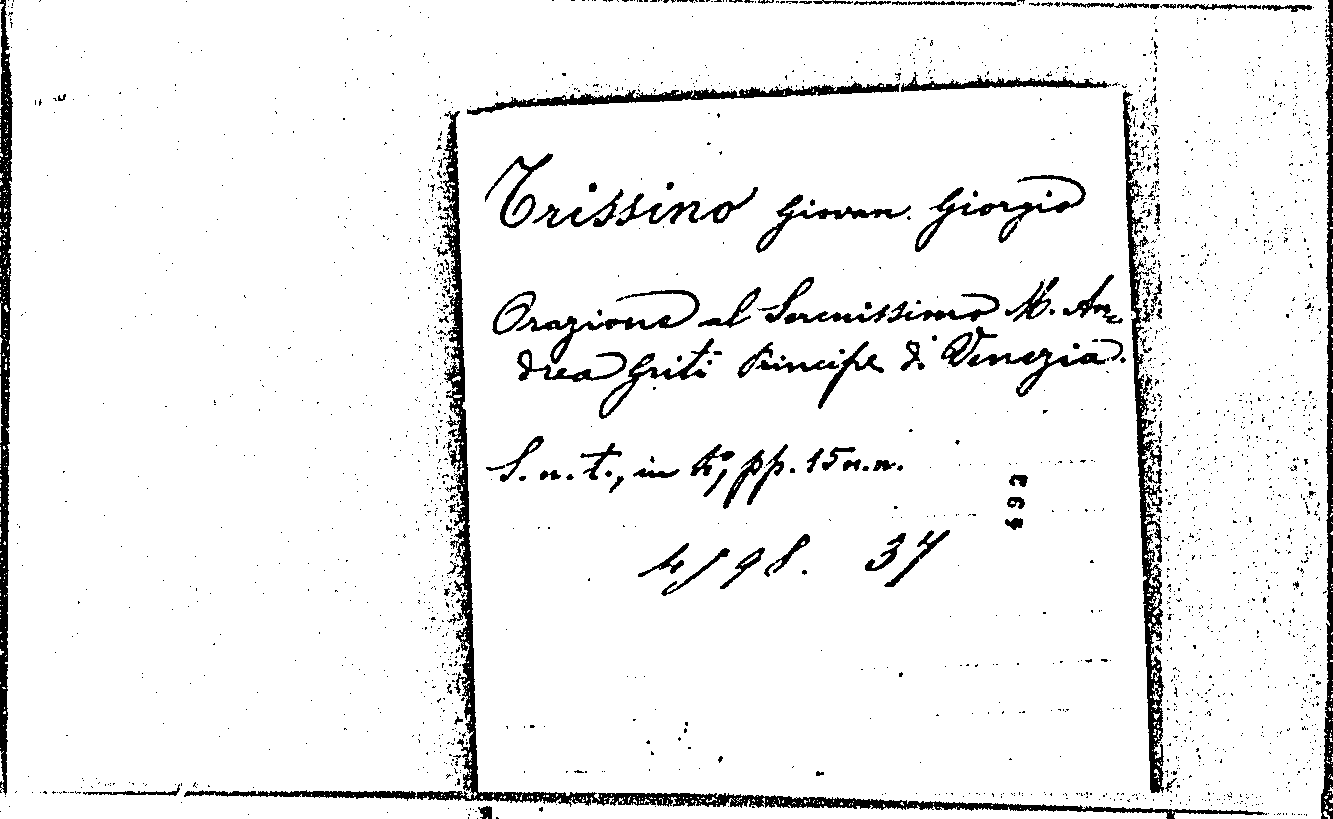 Trissino Giovan. Giorgio
Orazione al Serenissimo M. An=
drea Griti Principe di Venezia.
S. n. t., in 4°, pp. 15 n. n.
37